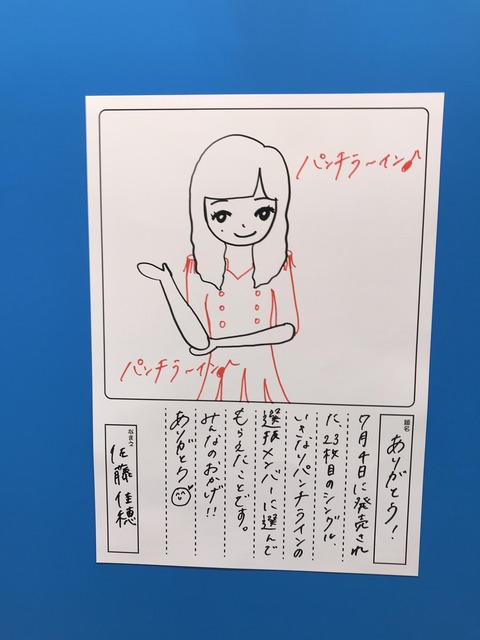 パンチラーイン♪
パンチラーイン♪
題名
ありがとう!
7月4日に発売され
た、23枚目のシングル、
いきなりパンチラインの
選抜メンバーに選んで
もらえたことです。
みんなのおかげ!!
ありがとう
なまえ
佐藤佳穂